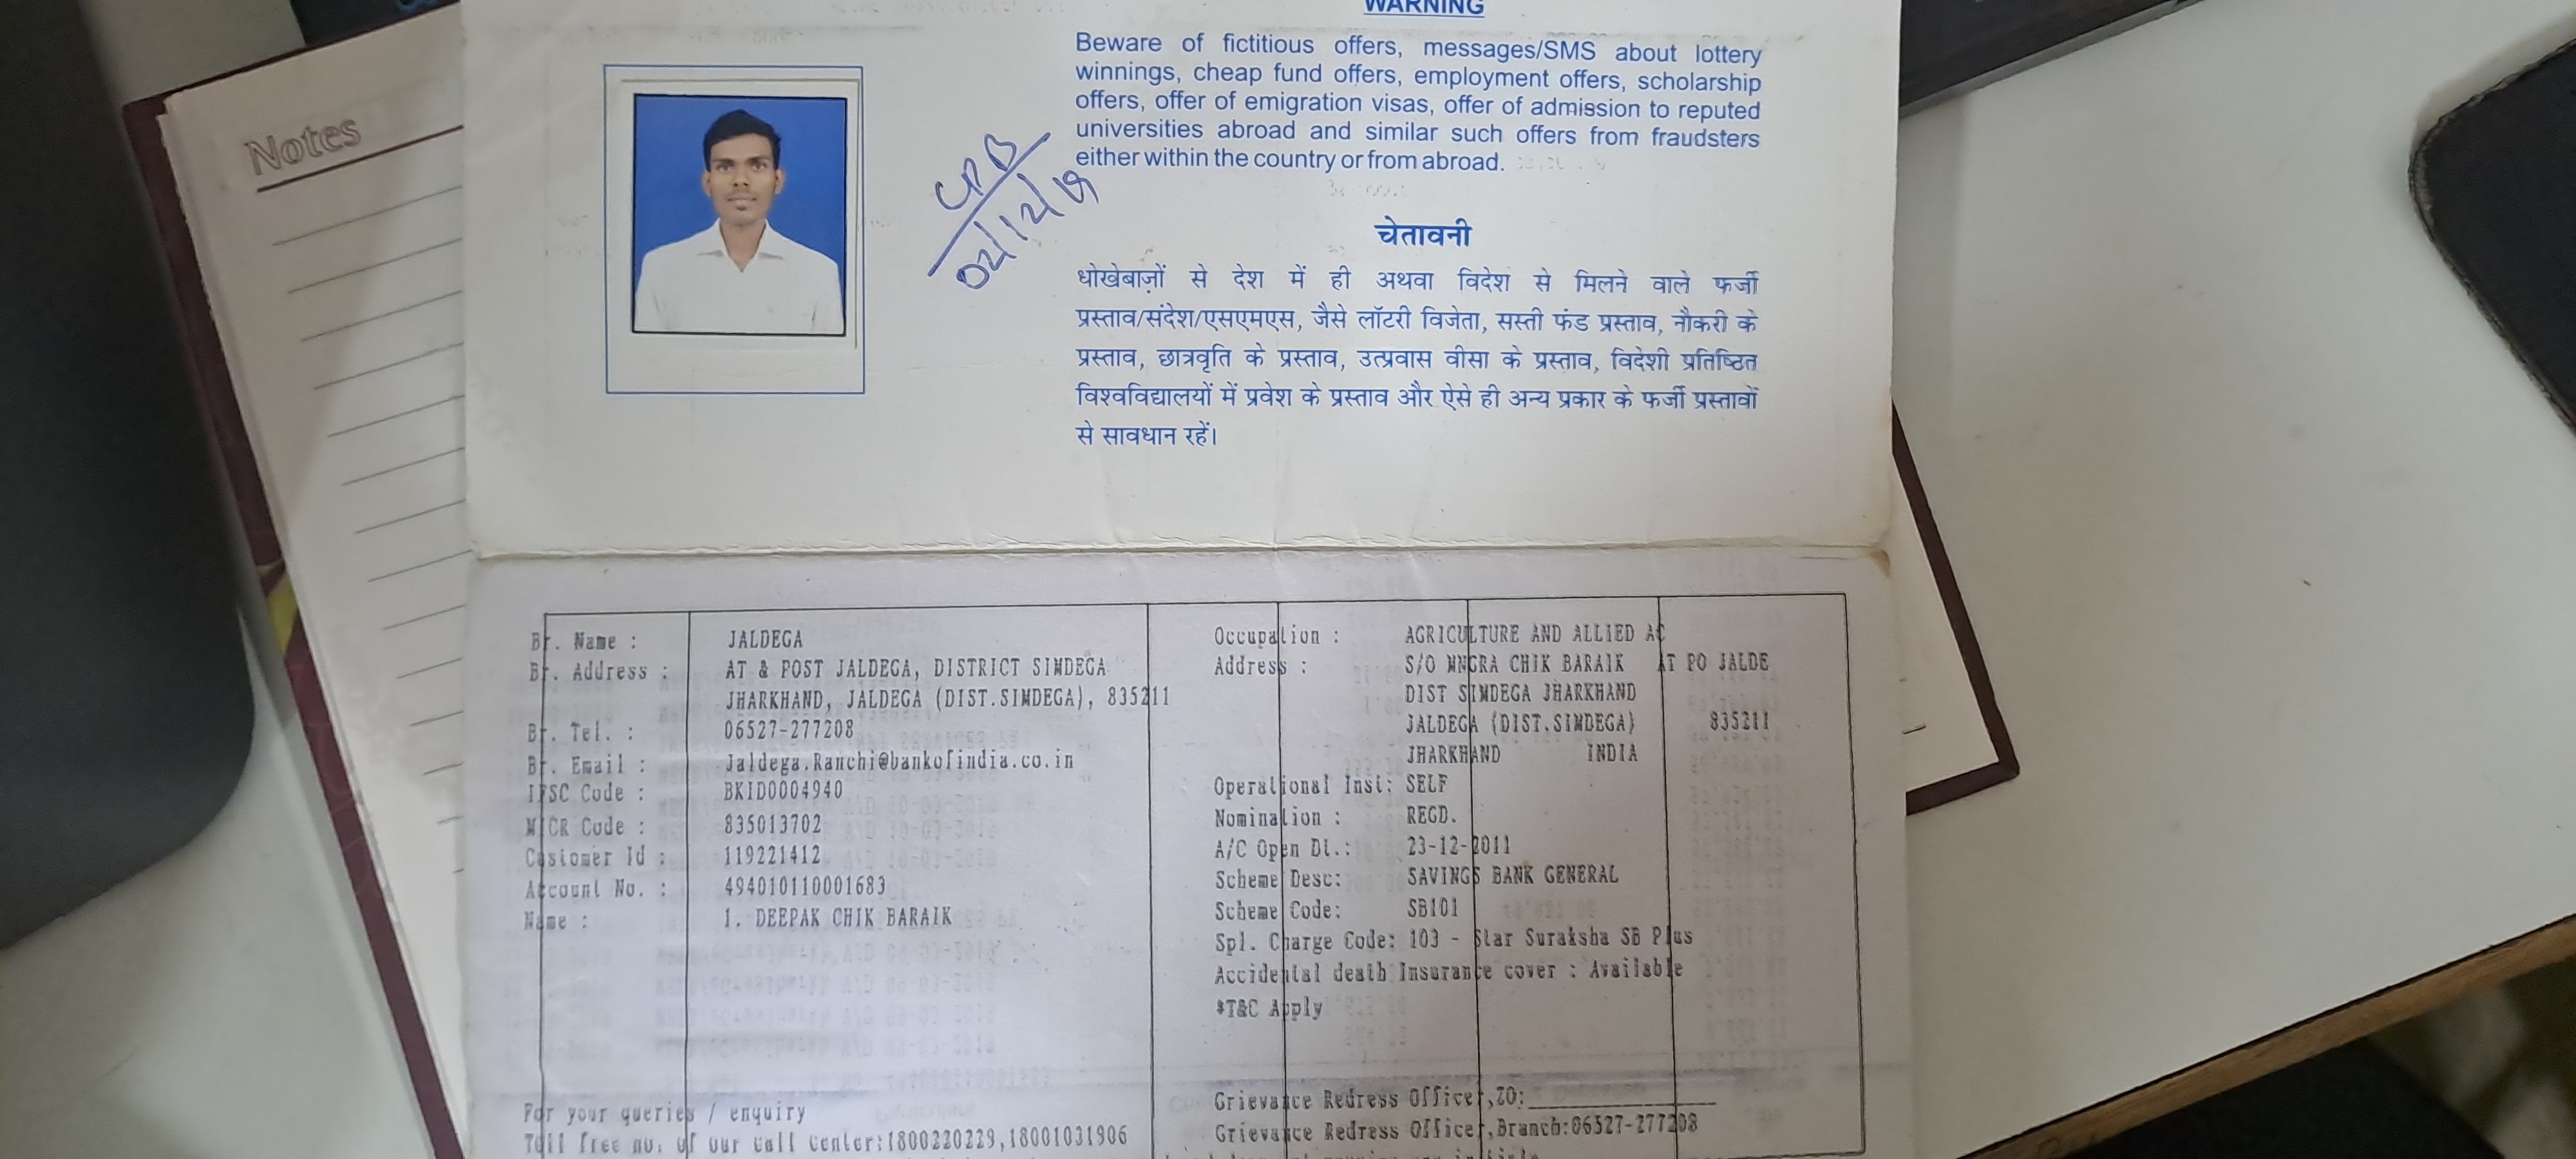 Notes
WARNING
Beware of fictitious offers, messages/SMS about lottery
winnings, cheap fund offers, employment offers, scholarship
offers, offer of emigration visas, offer of admission to reputed
universities abroad and similar such offers from fraudsters
either within the country or from abroad.
चेतावनी
धोखेबाज़ों से देश में ही अथवा विदेश से मिलने वाले फर्जी
प्रस्ताव/संदेश/एसएमएस, जैसे लॉटरी विजेता, सस्ती फंड प्रस्ताव, नौकरी के
प्रस्ताव, छात्रवृति के प्रस्ताव, उत्प्रवास वीसा के प्रस्ताव, विदेशी प्रतिष्ठित
विश्वविद्यालयों में प्रवेश के प्रस्ताव और ऐसे ही अन्य प्रकार के फर्जी प्रस्तावों
से सावधान रहें।
Br. Name : JALDEGA
Br. Address : AT & POST JALDEGA, DISTRICT SIMDEGA
JHARKHAND, JALDEGA (DIST.SIMDEGA), 835211
Br. Tel. : 06527-277208
Br. Email : Jaldega.Ranchi@bankofindia.co.in
IFSC Code : BKID0004940
MICR Code : 835013702
Customer Id : 119221412
Account No. : 494010110001683
Name : 1. DEEPAK CHIK BARAIK
For your queries / enquiry
Toll free no. of our call center:1800220229,18001031906
Occupation : AGRICULTURE AND ALLIED AC
Address : S/O MNGRA CHIK BARAIK AT PO JALDE
DIST SIMDEGA JHARKHAND
JALDEGA (DIST.SIMDEGA) 835211
JHARKHAND INDIA
Operational Inst: SELF
Nomination : REGD.
A/C Open Dt.: 23-12-2011
Scheme Desc: SAVINGS BANK GENERAL
Scheme Code: SB101
Spl. Charge Code: 103 - Star Suraksha SB Plus
Accidental death Insurance cover : Available
*T&C Apply
Grievance Redress Officer,ZO:
Grievance Redress Officer,Branch:06527-277208